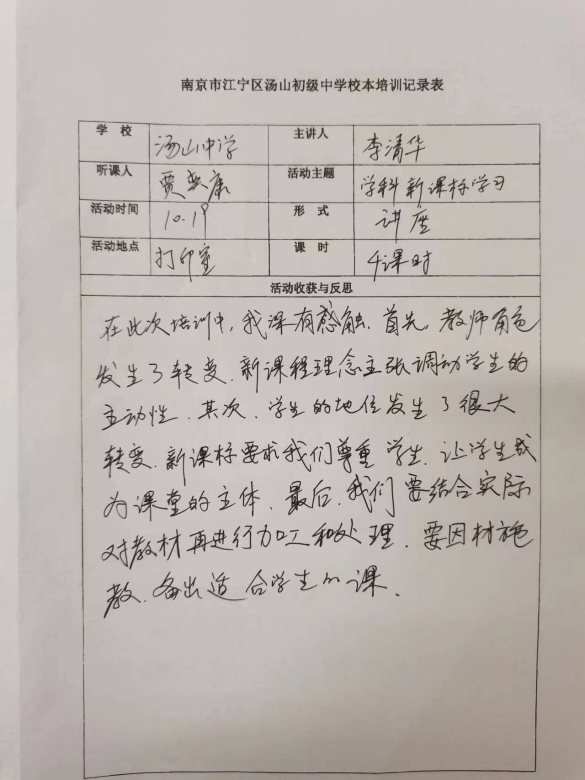 南京市江宁区汤山初级中学校本培训记录表
学 校 汤山中学 主讲人 李清华
听课人 贾 康 活动主题 学科新课标学习
活动时间 10.19 形 式 讲座
活动地点 打印室 课 时 4课时
活动收获与反思
在此次培训中,我深有感触.首先,教师角色
发生了转变.新课程理念主张调动学生的
主动性.其次,学生的地位发生了很大
转变.新课标要求我们尊重学生.让学生成
为课堂的主体.最后,我们要结合实际
对教材再进行加工和处理.要因材施
教.备出适合学生的课.